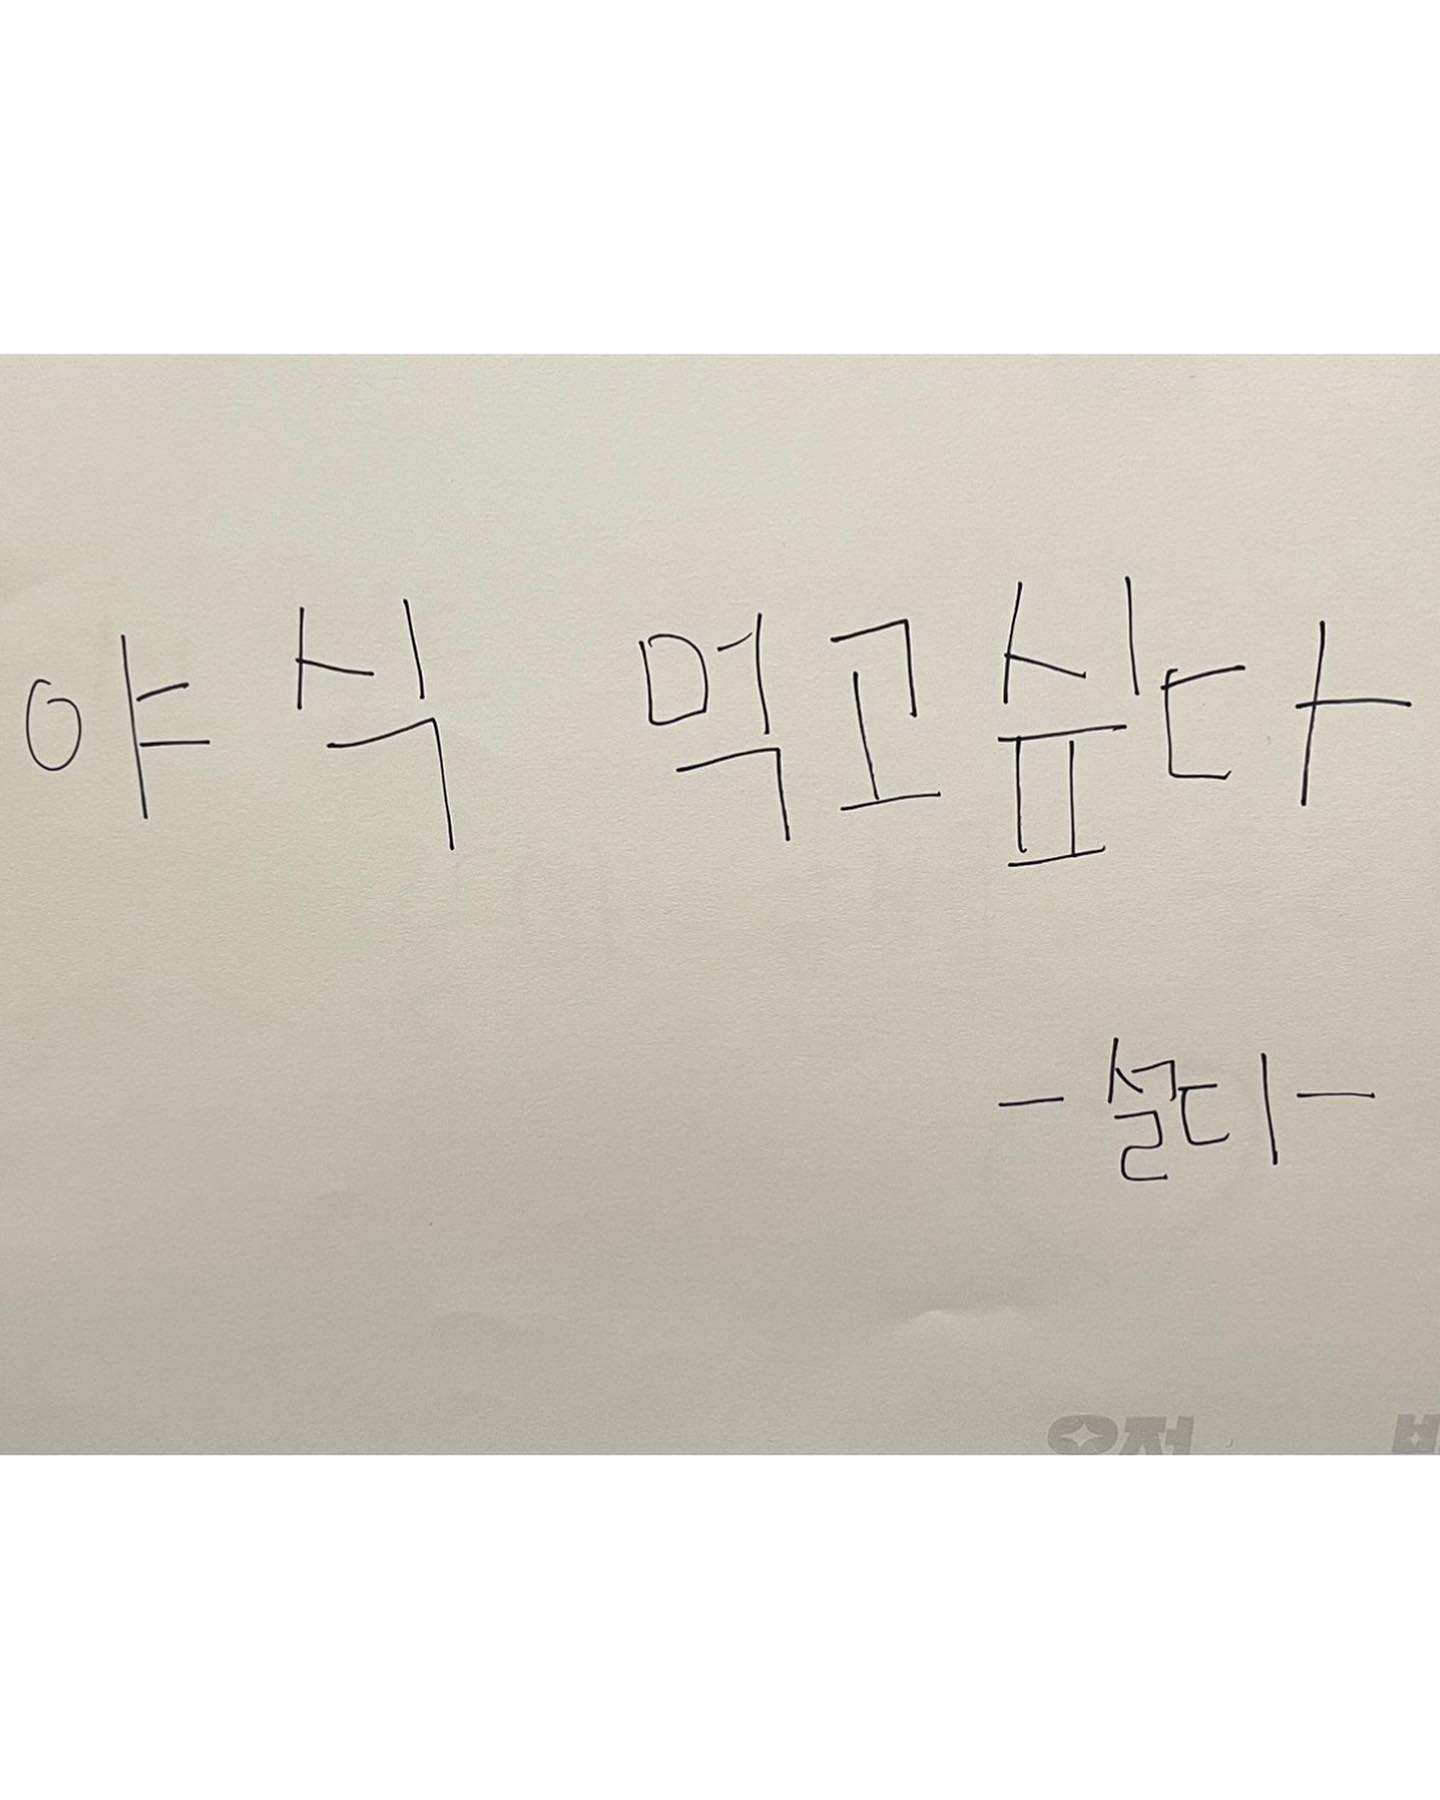 야식 먹고싶다
- 설디 -